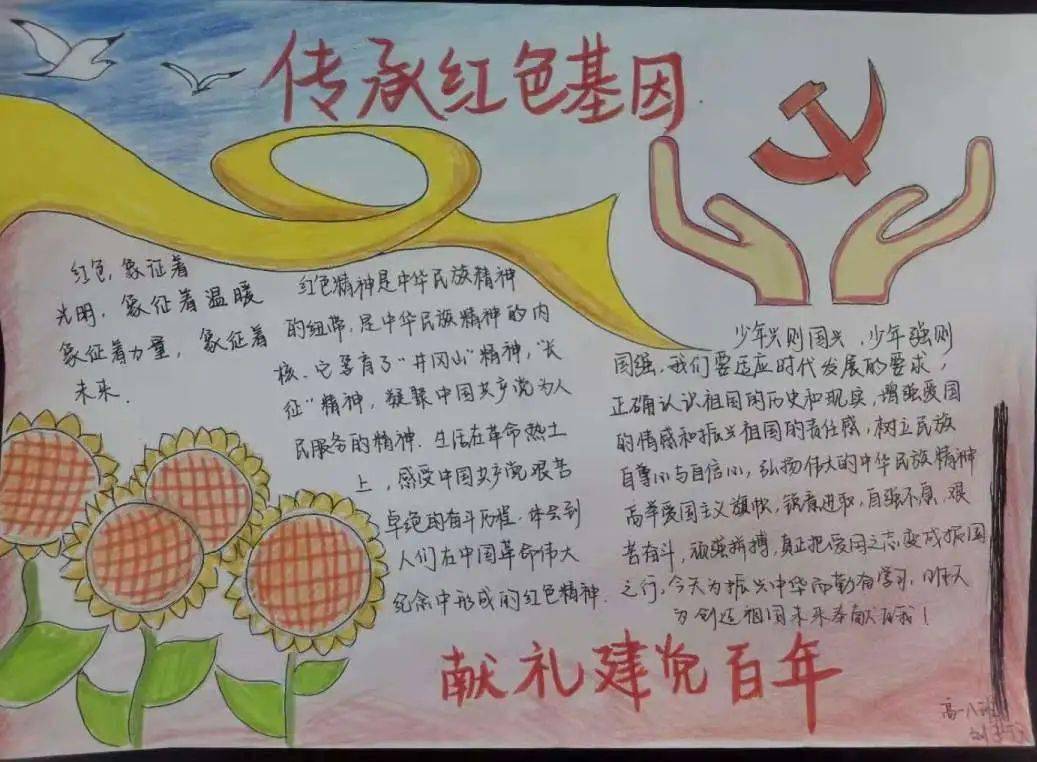 传承红色基因
红色,象征着
光明,象征着温暖
象征着力量,象征着
未来.
红色精神是中华民族精神
的纽带,是中华民族精神的内
核.它孕育了"井冈山"精神,"长
征"精神,凝聚中国共产党为人
民服务的精神.生活在革命热土
上,感受中国共产党艰苦
卓绝的奋斗历程.体会到
人们在中国革命伟大
纪念中形成的红色精神.
少年兴则国兴,少年强则
国强.我们要适应时代发展的要求,
正确认识祖国的历史和现实,增强爱国
的情感和振兴祖国的责任感,树立民族
自尊心与自信心,弘扬伟大的中华民族精神
高举爱国主义旗帜,锐意进取,自强不息,艰
苦奋斗,顽强拼搏,真正把爱国之志变成报国
之行,今天为振兴中华而勤奋学习,明天
为创造祖国未来奉献自我!
献礼建党百年
高一八班